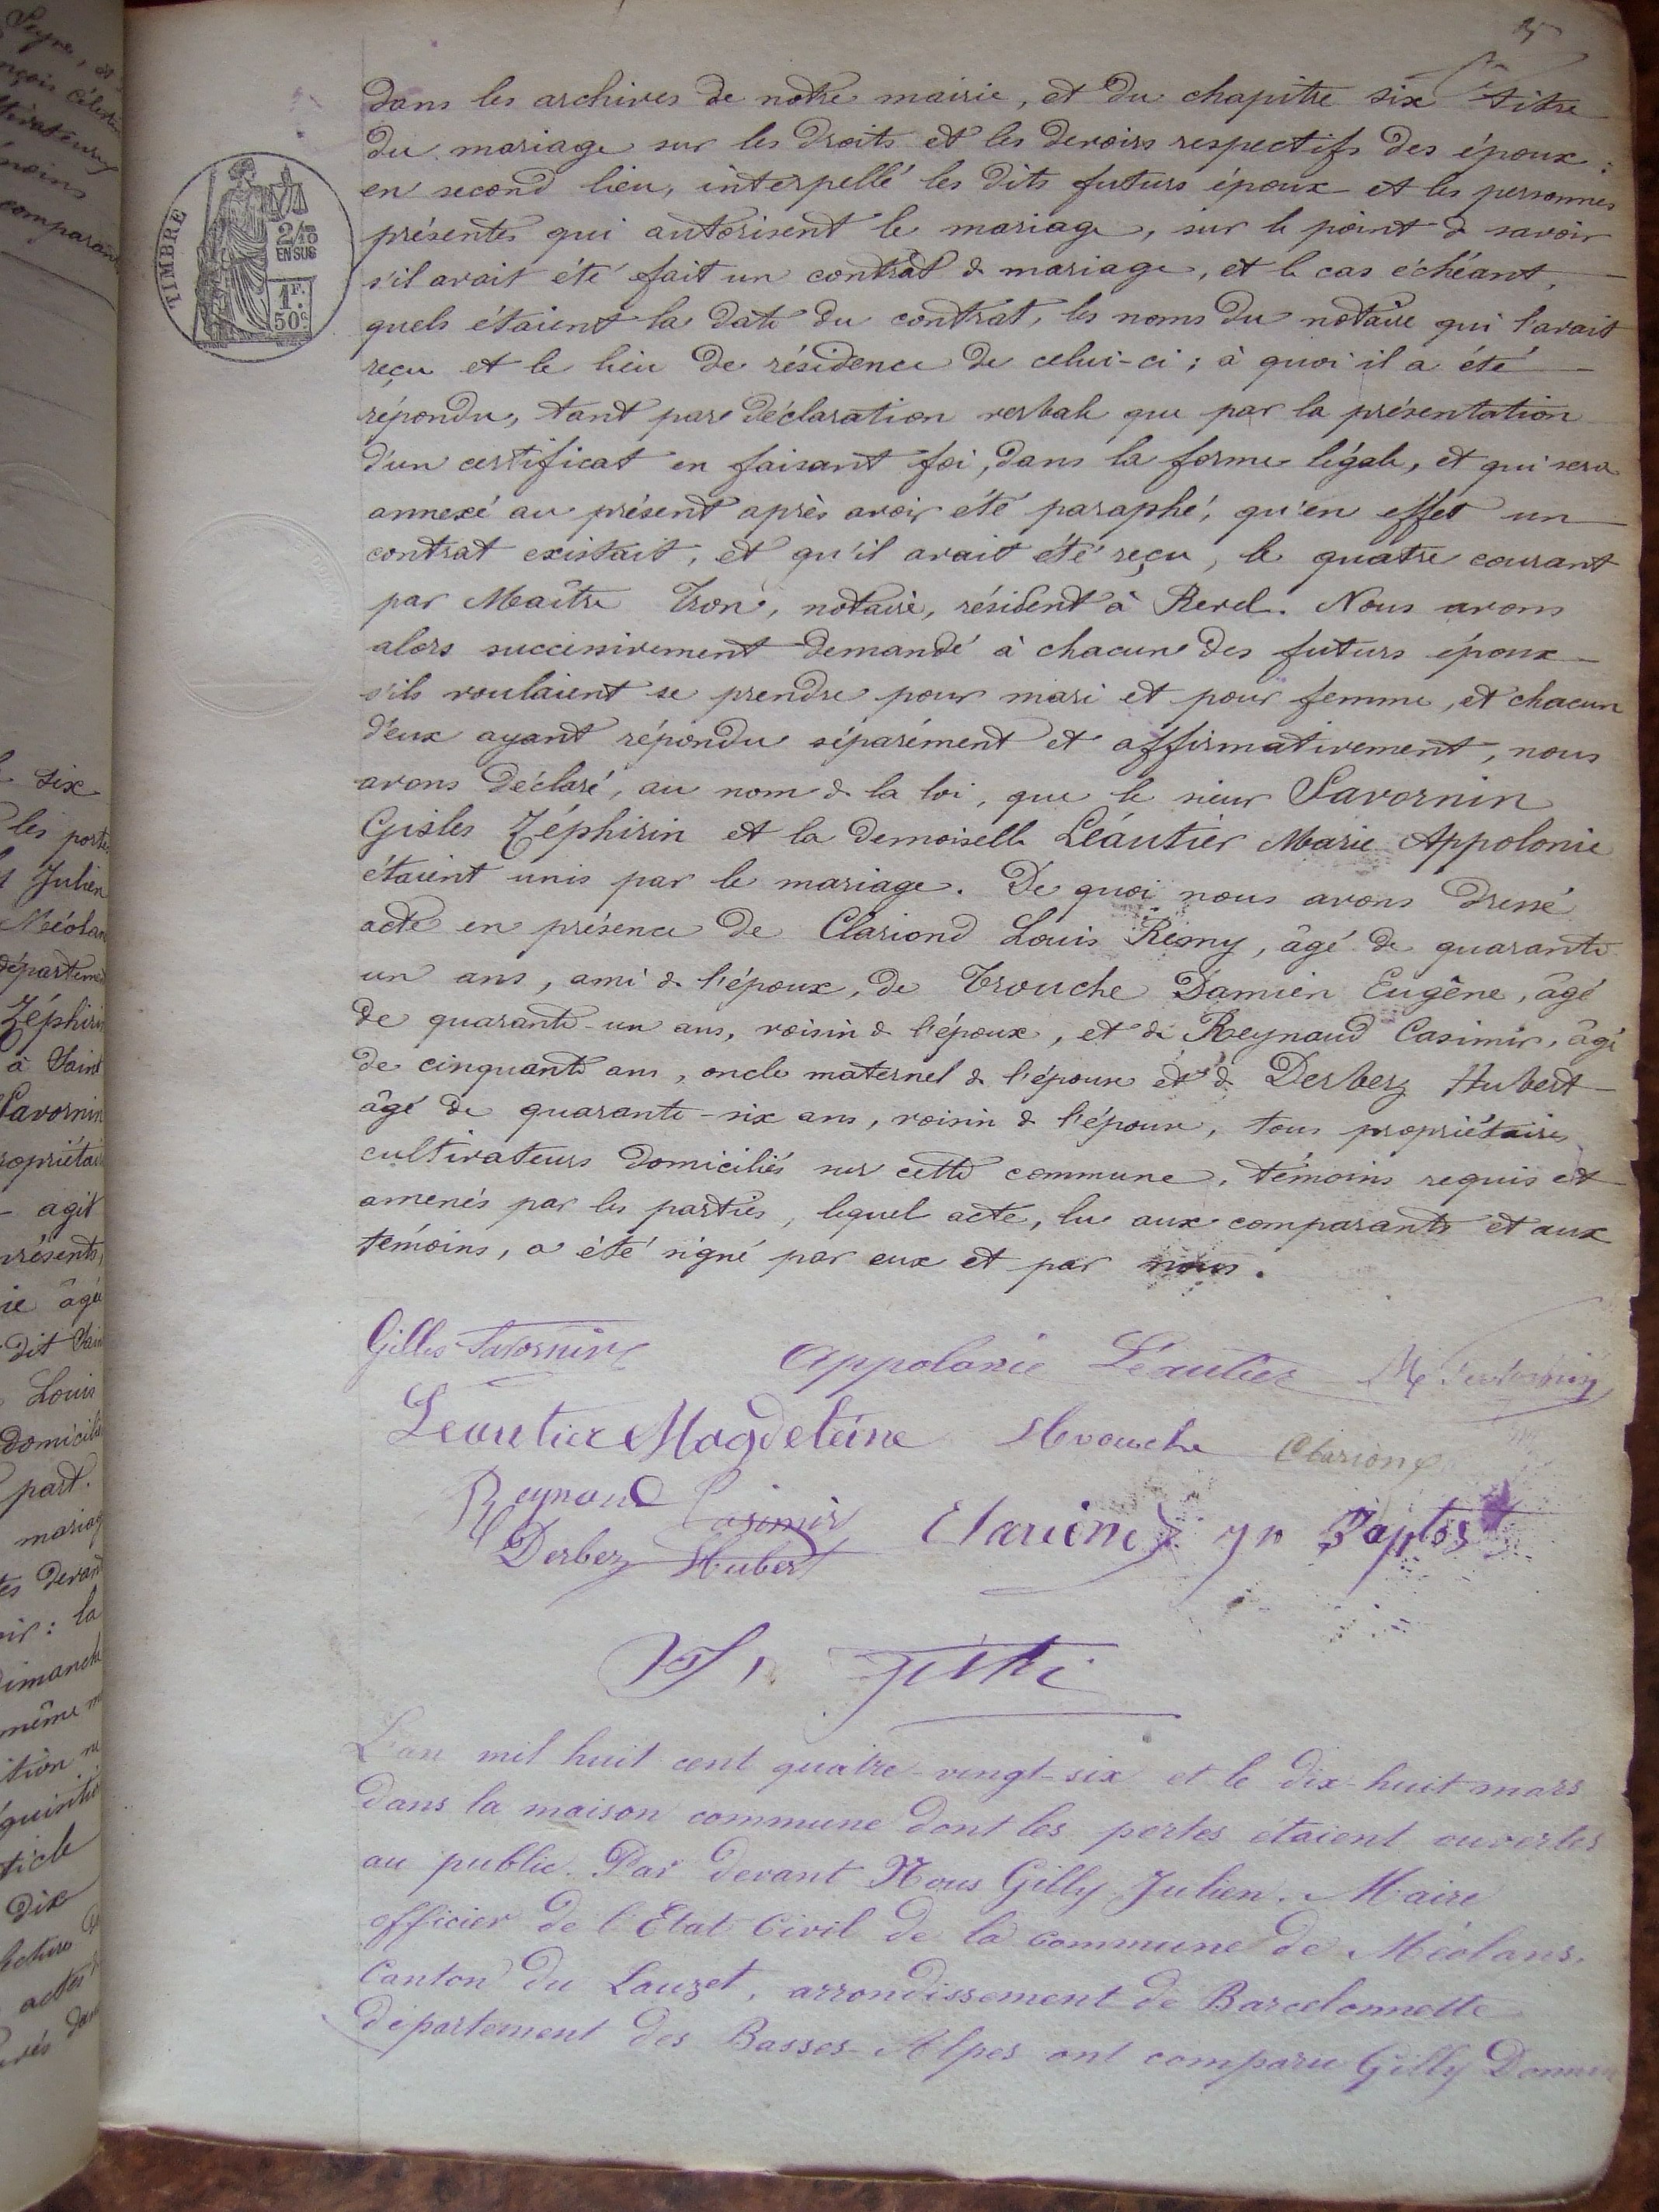 TIMBRE
2/10
EN SUS
1F.
50c
dans les archives de notre mairie, et du chapitre six titre
du mariage sur les droits et les devoirs respectifs des époux ;
en second lieu, interpellé les dits futurs époux et les personnes
présentes qui autorisent le mariage, sur le point de savoir
s'il avait été fait un contrat de mariage, et le cas échéant,
quels étaient la date du contrat, les noms du notaire qui l'avait
reçu et le lieu de résidence de celui-ci ; à quoi il a été
répondu, tant par déclaration verbale que par la présentation
d'un certificat en faisant foi, dans la forme légale, et qui sera
annexé au présent après avoir été paraphé, qu'en effet un
contrat existait, et qu'il avait été reçu, le quatre courant
par Maître Tron, notaire, résident à Revel. Nous avons
alors successivement demandé à chacun des futurs époux
s'ils voulaient se prendre pour mari et pour femme, et chacun
d'eux ayant répondu séparément et affirmativement, nous
avons déclaré, au nom de la loi, que le sieur Savornin
Gisles Zéphirin et la demoiselle Léautier Marie Appolonie
étaient unis par le mariage. De quoi nous avons dressé
acte en présence de Clariond Louis Rémy, âgé de quarante
un ans, ami de l'époux, de Trouche Damien Eugène, âgé
de quarante-un ans, voisin de l'époux, et de Reynaud Casimir, âgé
de cinquante ans, oncle maternel de l'épouse et de Derbez Hubert
âgé de quarante-six ans, voisin de l'épouse, tous propriétaires
cultivateurs domiciliés sur cette commune, témoins requis et
amenés par les parties, lequel acte, lu aux comparants et aux
témoins, a été signé par eux et par nous.
Gilles Savornin Appolonie Léautier
Léautier Magdeleine Trouche Clariond
Reynaud Casimir
Derbez Hubert
L'an mil huit cent quatre-vingt-six et le dix-huit mars
dans la maison commune dont les portes etaient ouvertes
au public. Par devant Nous Gilly Julien. Maire
officier de l'Etat Civil de la commune de Méolans.
Canton du Lauzet, arrondissement de Barcelonnette
département des Basses-Alpes ont comparu Gilly